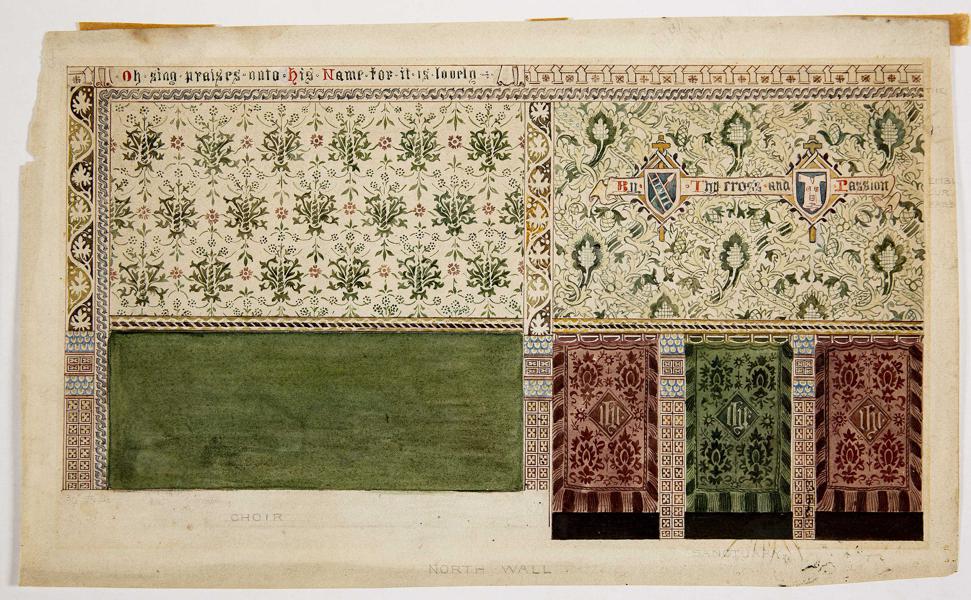 Oh sing praises unto His Name for it is lovely
By Thy cross and Passion
ihc ihc ihc
CHOIR
SANCTUARY
NORTH WALL